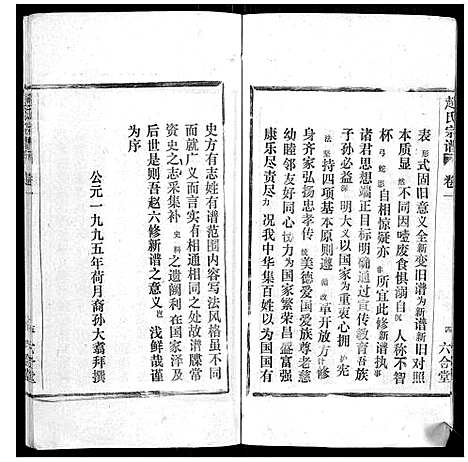 趙氏宗谱 卷一
四 六合堂
表形式固旧意义全新变旧谱为新谱新旧对照
本质显然不同因噎废食惧溺自沉人称不智
杯弓蛇影自相惊疑亦非所宜此修新谱执事
诸君思想端正目标明确通过宣传教育族
子孙必益深明大义以国家为重衷心拥护宪
法坚持四项基本原则遵循改革开放方针修
身齐家弘扬忠孝传统美德爱国爱族尊老慈
幼睦邻友好同心协力为国家繁荣昌盛富强
康乐尽责尽力况我中华集百姓以为国
史方有志姓有谱范围内容写法风格虽不同
而就广义而言实有相通相同之处故谱牒常
资史之志采集补史料之遗阙利在国家泽及
后世是则吾赵六修新谱之意义也浅鲜哉谨
为序
公元一九九五年荷月裔孙大翥拜撰